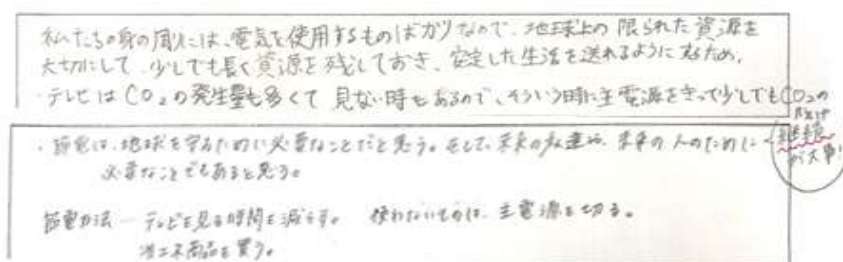 私たちの身の周りには、電気を使用するものばかりなので、地球上の限られた資源を
大切にして、少しでも長く資源を残しておき、安定した生活を送れるようにするため。
・テレビはCO₂の発生量も多くて見ない時もあるので、そういう時に主電源をきって少しでもCO₂の
・節電は、地球を守るために必要なことだと思う。そして、未来の私達や、未来の人のために
必要なことでもあると思う。
継続
が大事!
節電方法 ― テレビを見る時間を減らす。 使わないものは、主電源を切る。
省エネ商品を買う。